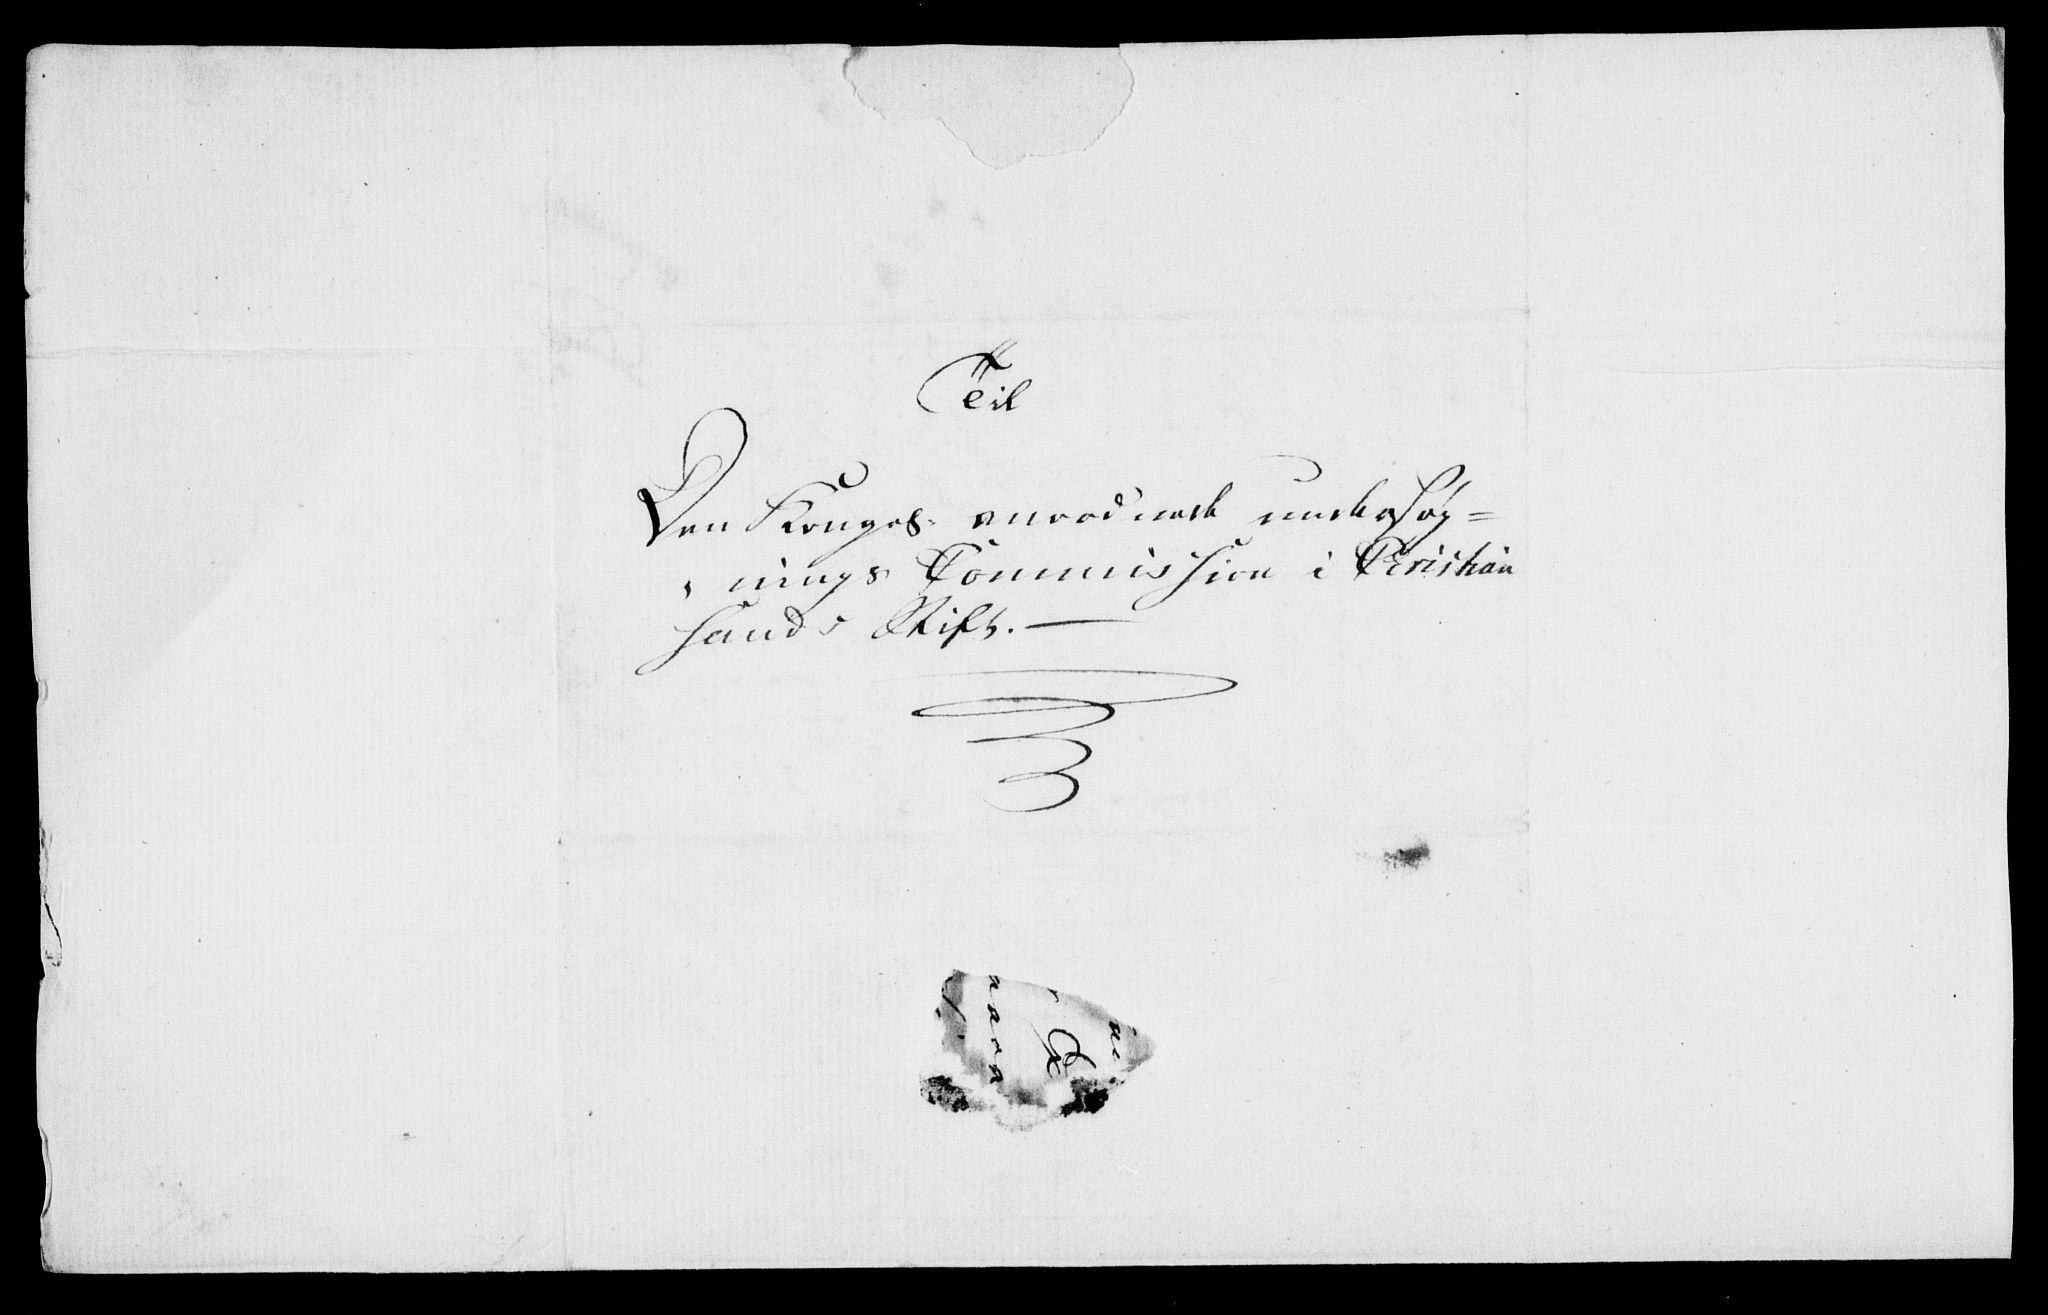 Til
Den Konges anordnede undersøg=
nings Commission i Christian
sands Stift. —